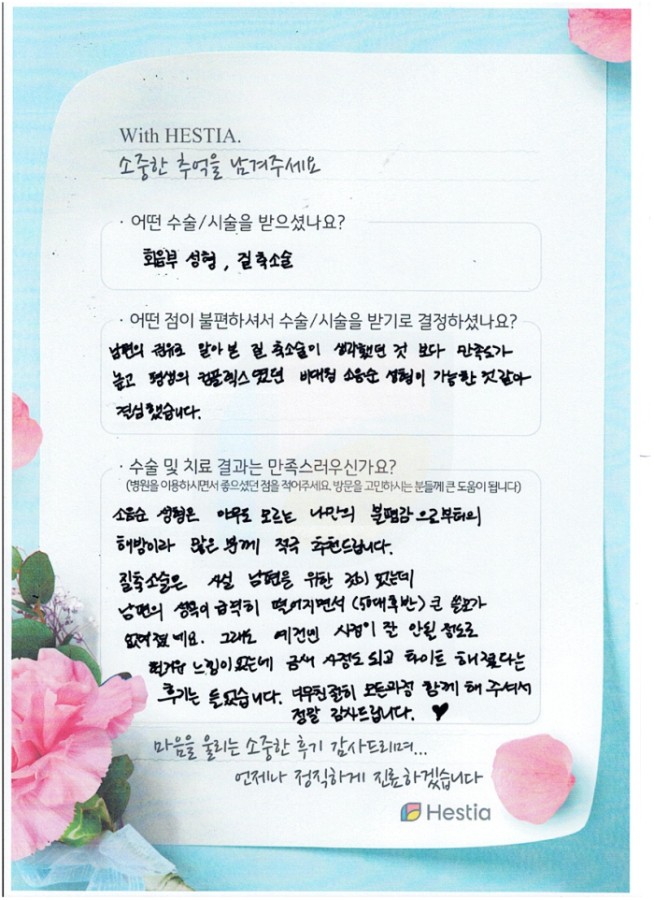 With HESTIA.
소중한 추억을 남겨주세요
· 어떤 수술/시술을 받으셨나요?
회음부 성형, 질축소술
· 어떤 점이 불편하셔서 수술/시술을 받기로 결정하셨나요?
남편의 권유로 알아본 질 축소술이 생각했던 것 보다 만족도가
높고 평생의 컴플렉스였던 비대칭 소음순 성형이 가능한 것 같아
결심했습니다.
· 수술 및 치료 결과는 만족스러우신가요?
(병원을 이용하시면서 좋으셨던 점을 적어주세요. 방문을 고민하시는 분들께 큰 도움이 됩니다)
소음순 성형은 아무도 모르는 나만의 불편감으로부터의
해방이라 많은 분께 적극 추천드립니다.
질축소술은 사실 남편을 위한 것이 었는데
남편의 성욕이 급격히 떨어지면서 (50대후반) 큰 쓸모가
없어졌네요. 그래도 예전엔 사정이 잘 안될 정도로
헐거운 느낌이었는데 금새 사정도 되고 타이트 해졌다는
후기는 들었습니다. 너무친절히 모든과정 함께 해 주셔서
정말 감사드립니다. ♥
마음을 울리는 소중한 후기 감사드리며...
언제나 정직하게 진료하겠습니다
Hestia